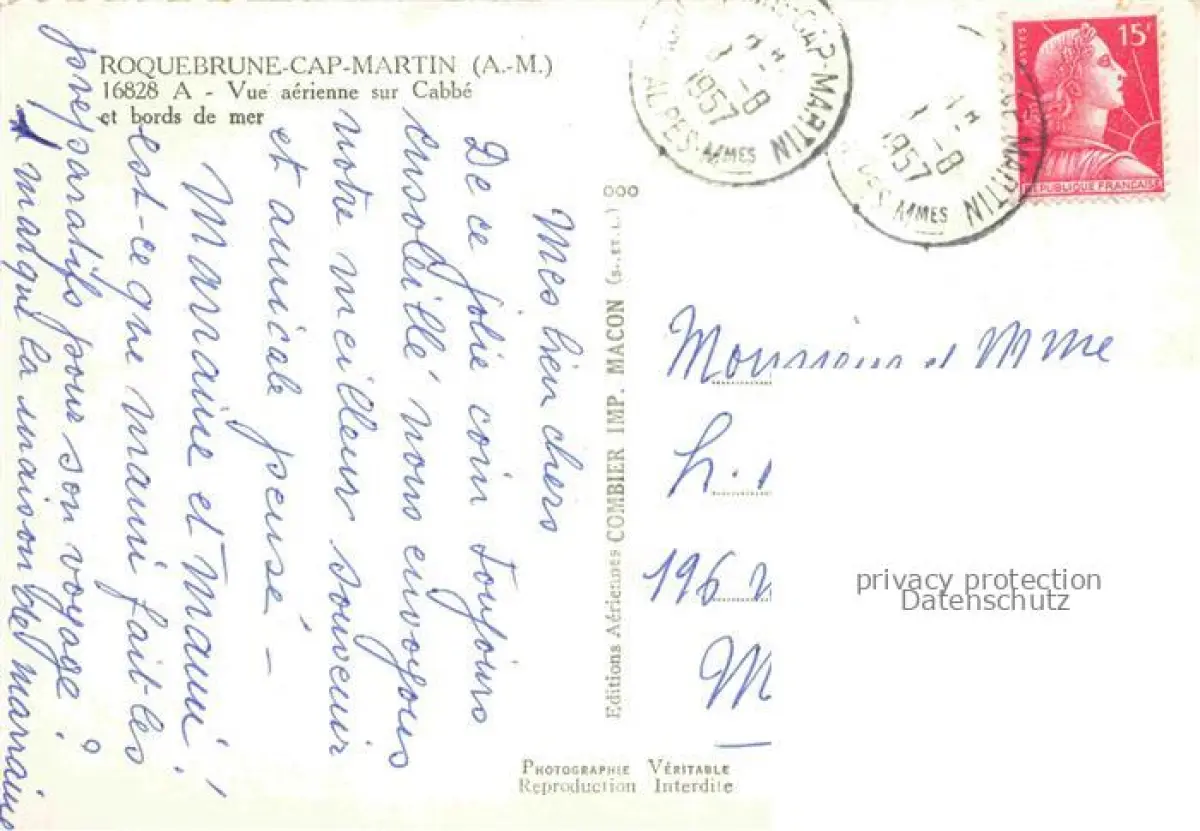 ROQUEBRUNE-CAP-MARTIN (A.-M.)
16828 A - Vue aérienne sur Cabbé
et bords de mer
Mes bien chers
De ce jolie coin toujours
ensoleillé nous envoyons
notre meilleur souvenir
et amicale pensé -
Marraine et Mami
est-ce que mami fait les
preparatifs pour son voyage?
* marqui la maison de marraine
Editions Aériennes COMBIER IMP. MACON (S.-ET-L.)
PHOTOGRAPHIE VÉRITABLE
Reproduction Interdite
CAP-MARTIN
1-8
1957
ALPES-MMES
MARTIN
-8
1957
MMES
15f
POSTES
REPUBLIQUE FRANÇAISE
Monsieur et Mme
h.
196
M
privacy protection
Datenschutz